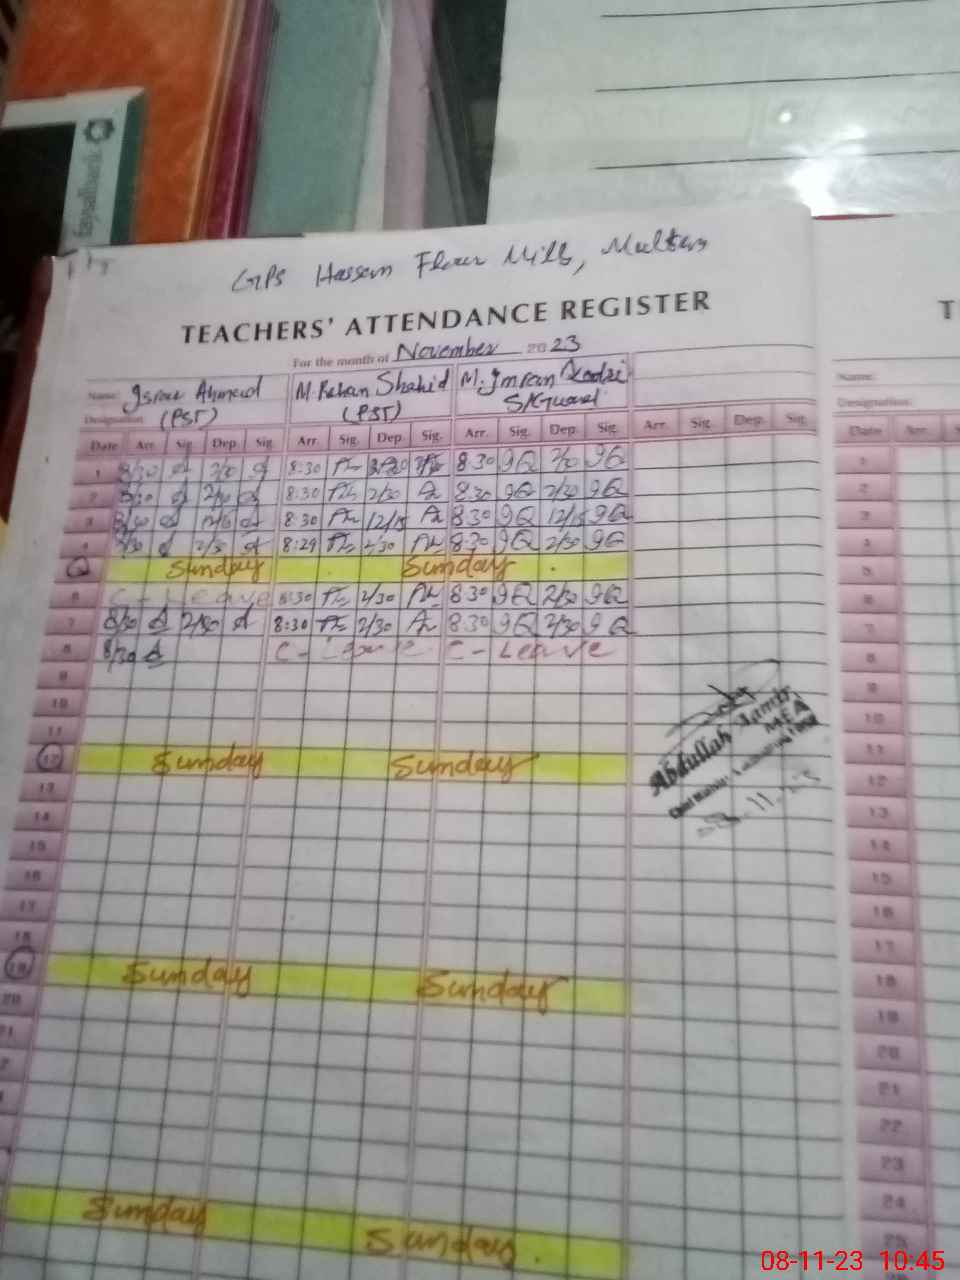 faysalbank
GPS Hassan Flour Mills, Multan
TEACHERS' ATTENDANCE REGISTER
For the month of November 2023
Name: Israr Ahmed M. Rehan Shahid M. Imran Qadri
Designation: (PST) (PST) S/Guard
Date Arr. Sig. Dep. Sig. Arr. Sig. Dep. Sig. Arr. Sig. Dep. Sig. Arr. Sig. Dep. Sig.
1 8/30 2/30 8:30 8:30 2/30
2 8/30 2/30 8:30 2/30 8:30 2/30
3 8/30 12/15 8:30 12/15 8:30 12/15
4 8/30 2/30 8:29 2/30 8:30 2/30
Sunday Sunday
6 C-Leave 8:30 2/30 8:30 2/30
7 8/30 2/30 8:30 2/30 8:30 2/30
8 8/30 C-Leave C-Leave
9
10
11
12 Sunday Sunday
13
14
15
16
17
18
19 Sunday Sunday
20
21
Sunday
Sunday
Abdullah Aamir
MEA
08.11.23
Name:
Designation:
Date Arr.
1
2
3
4
5
6
7
8
9
10
11
12
13
14
15
16
17
18
19
20
21
22
23
24
25
08-11-23 10:45